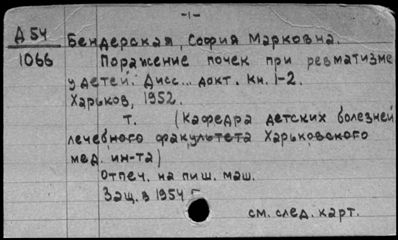 -1-
Д 54 Бендерская, София Марковна.
1066 Поражение почек при ревматизме
у детей: Дисс... докт. Кн. 1-2.
Харьков, 1952.
т. (Кафедра детских болезней
лечебного факультета Харьковского
мед. ин-та)
Отпеч. на пиш. маш.
Защ. в 1954 г.
см. след. карт.